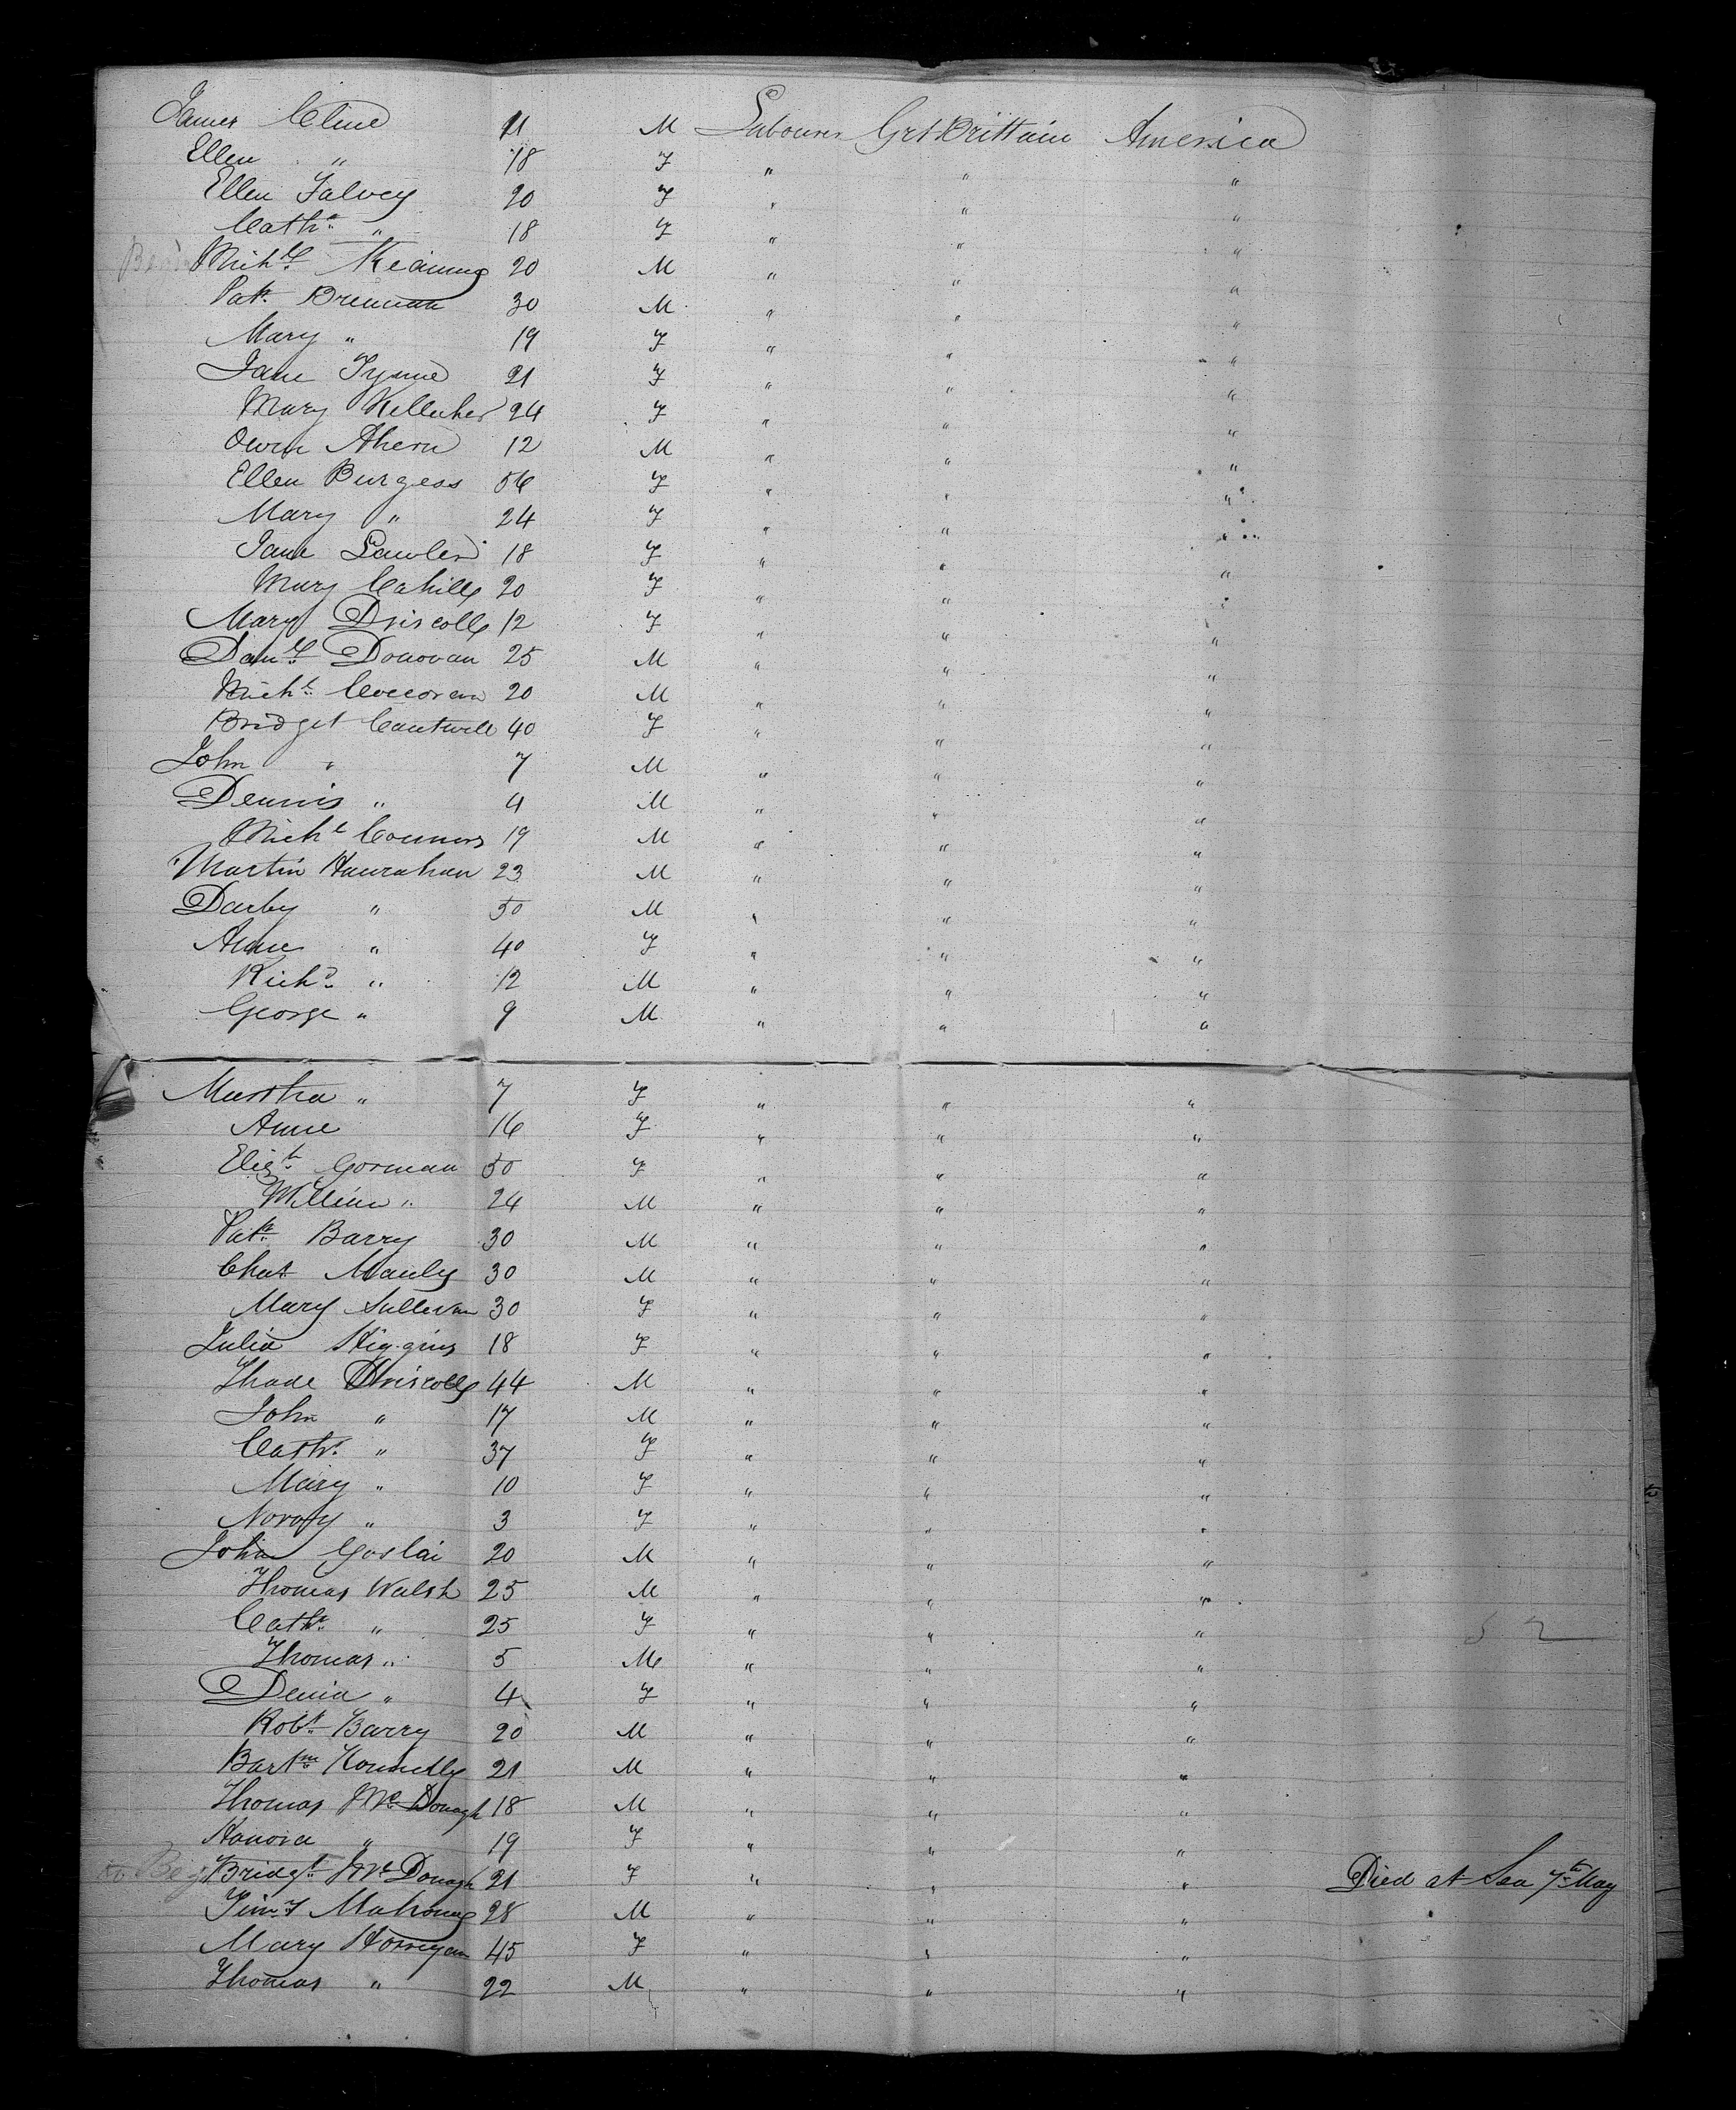 James Cline 11 M Labourer Grt Brittain America
Ellen " 18 F " " "
Ellen Falvey 20 F " " "
Cathe " 18 F " " "
Michl Keaiung 20 M " " "
Patk Brennan 30 M " " "
Mary " 19 F " " "
Jane Tynne 21 F " " "
Mary Kelleher 24 F " " "
Owen Ahern 12 M " " "
Ellen Burgess 56 F " " "
Mary " 24 F " " "
Jane Lawler 18 F " " "
Mary Cahill 20 F " " "
Mary Driscoll 12 F " " "
Danl Donovan 25 M " " "
Michl Corcoran 20 M " " "
Bridget Cantwell 40 F " " "
John " 7 M " " "
Dennis " 4 M " " "
Michl Connors 19 M " " "
Martin Hanrahan 23 M " " "
Darby " 50 M " " "
Anne " 40 F " " "
Richd " 12 M " " "
George " 9 M " " "
Martha " 7 F " " "
Anne 16 F " " "
Elizth Gorman 50 F " " "
William " 24 M " " "
Patk Barry 30 M " " "
Chas Manly 30 M " " "
Mary Sullivan 30 F " " "
Julia Higgins 18 F " " "
Thade Driscoll 44 M " " "
John " 17 M " " "
Cathe " 37 F " " "
Mary " 10 F " " "
Norry " 3 F " " "
John Goslai 20 M " " "
Thomas Walsh 25 M " " "
Cathe " 25 F " " "
Thomas " 5 M " " "
Denia " 4 F " " "
Robt Barry 20 M " " "
Bartw Konnelly 21 M " " "
Thomas McDonagh 18 M " " "
Hanora " 19 F " " "
Bridgt McDonagh 21 F " " " Died at Sea 7th May
Timy Mahoney 28 M " " "
Mary Horrigan 45 F " " "
Thomas " 22 M " " "